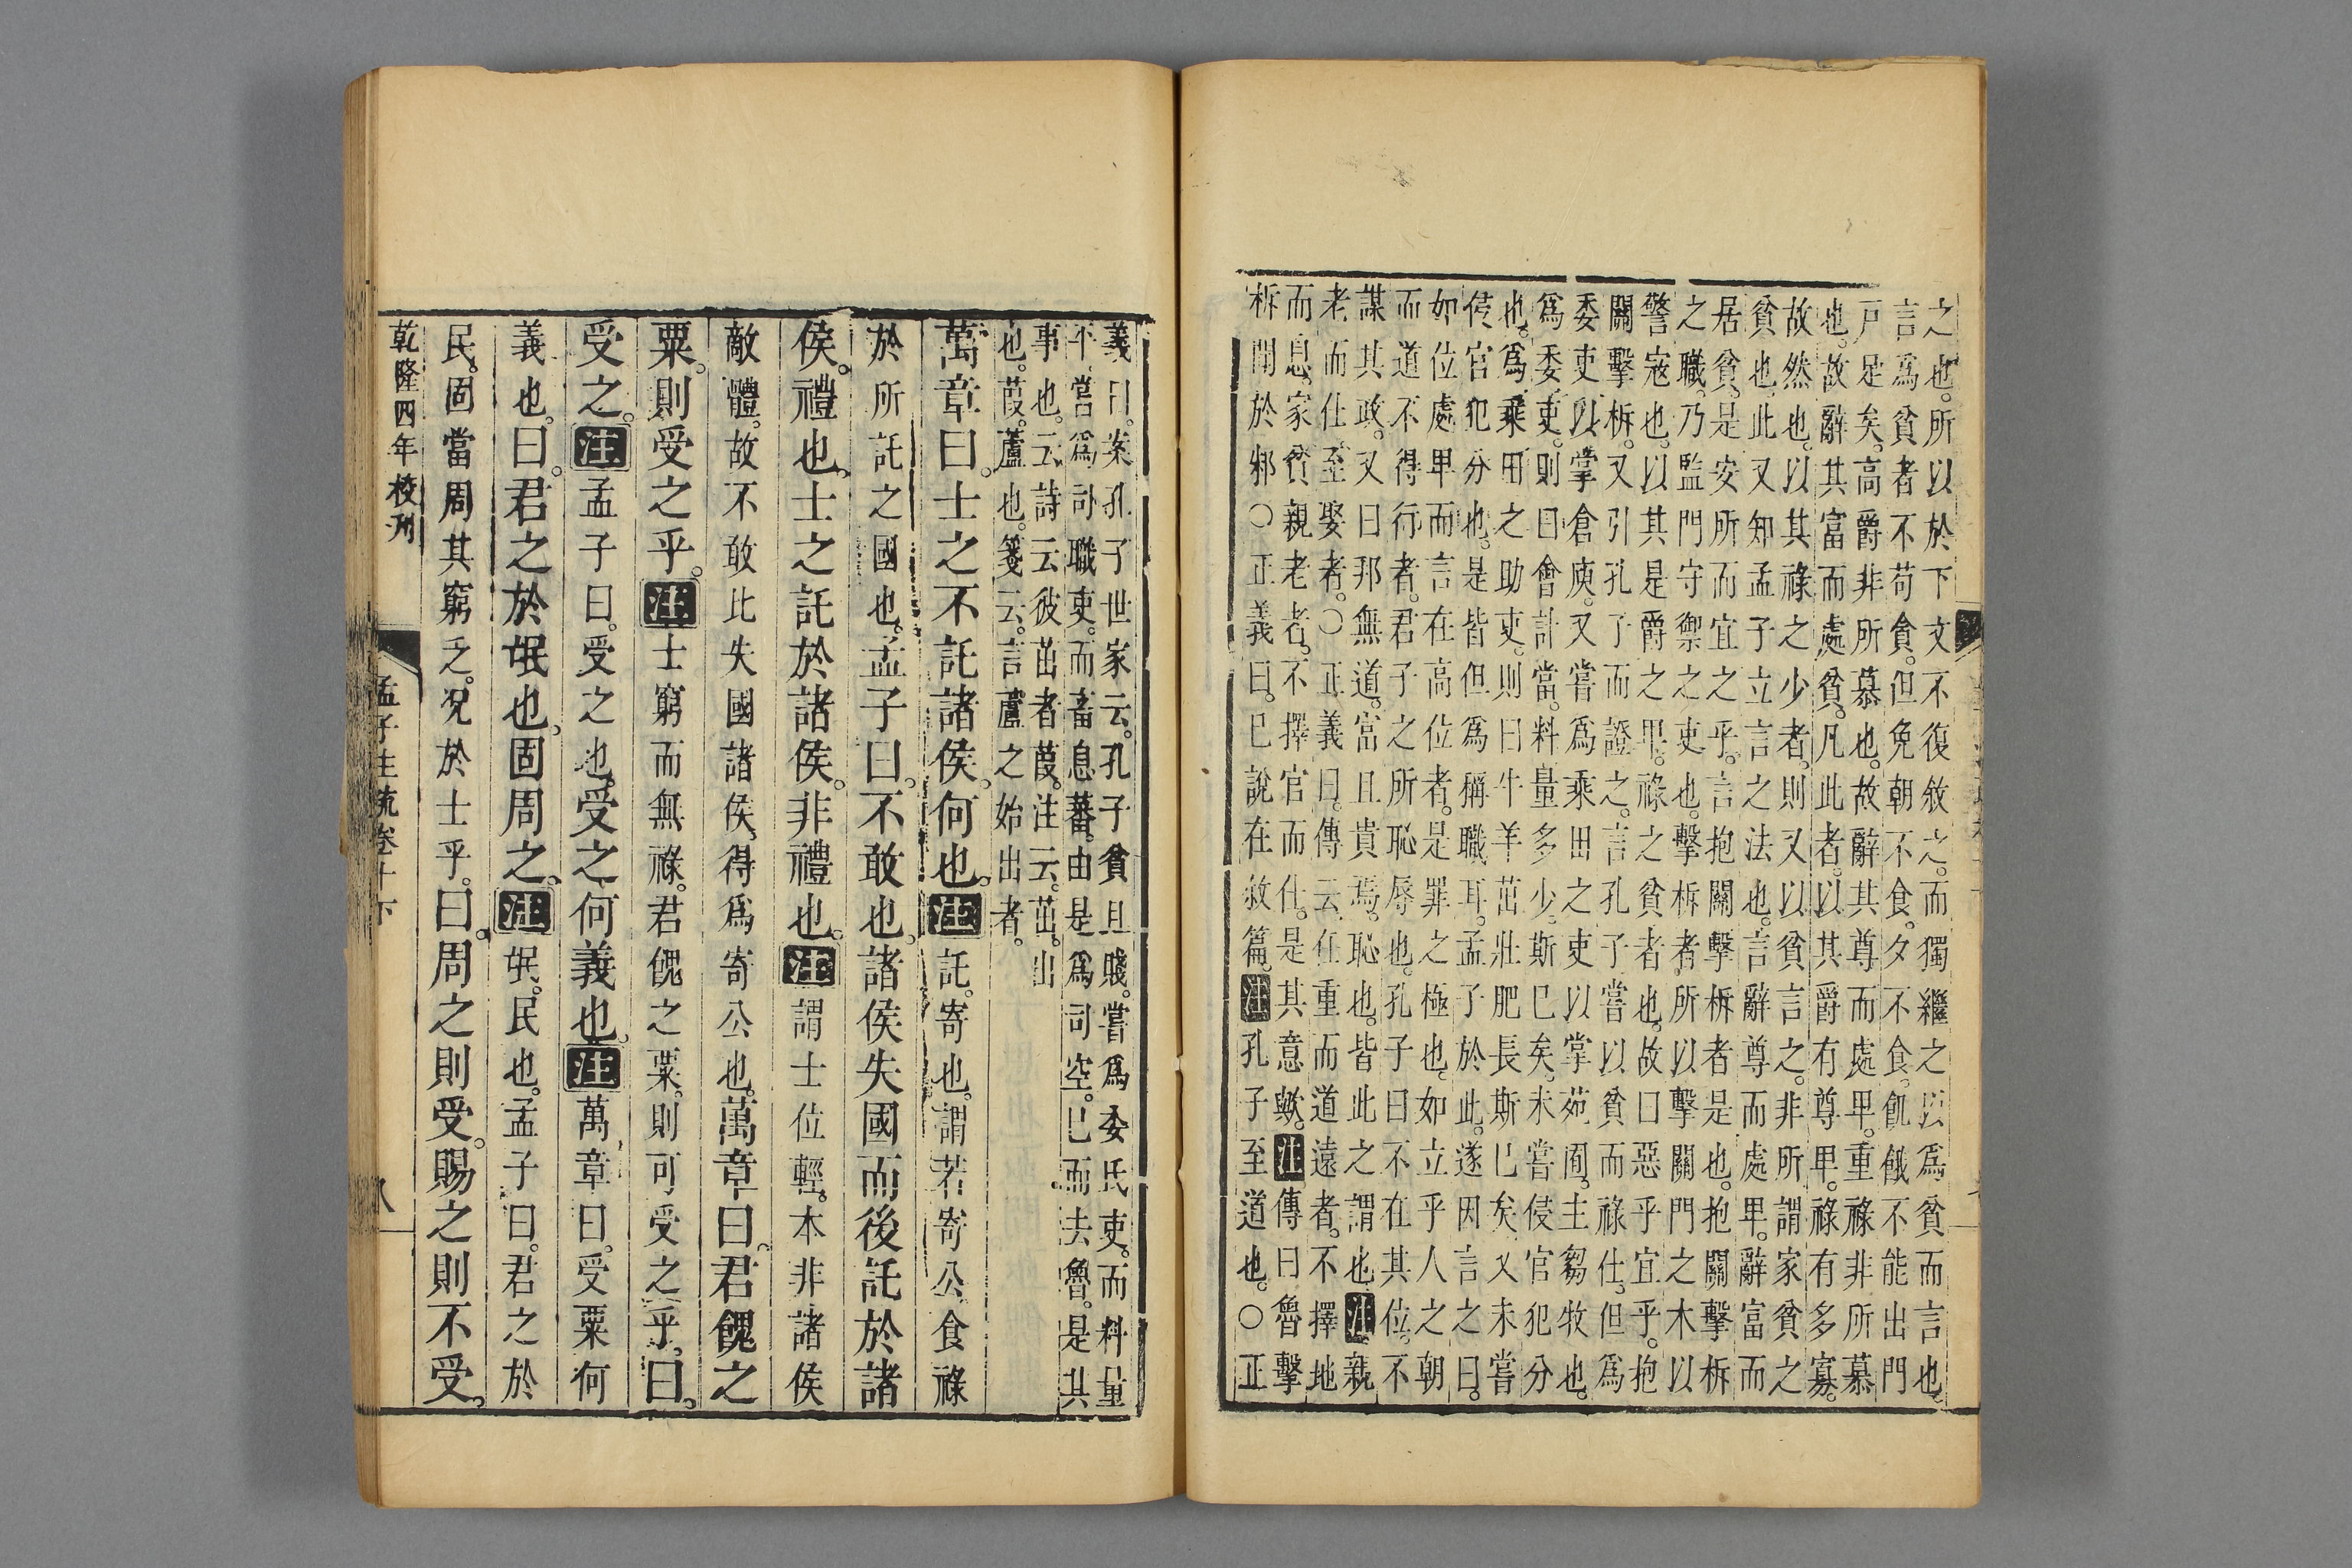 之也。所以於下文不復敘之。而獨繼之以爲貧而言也。
言爲貧者不苟貧。但免朝不食。夕不食。飢餓不能出門
戸足矣。高爵非所慕也。故辭其尊而處卑。重祿非所慕
也。故辭其富而處貧。凡此者。以其爵有尊卑。祿有多寡。
故然也。以其祿之少者。則又以貧言之。非所謂家貧之
貧也。此又知孟子立言之法也。言辭尊而處卑。辭富而
居貧。是安所而宜之乎。言抱關擊柝者是也。抱關擊柝
之職。乃監門守禦之吏也。擊柝者。所以擊關門之木以
警寇也。以其是爵之卑。祿之貧者也。故曰惡乎宜乎。抱
關擊柝。又引孔子而證之。言孔子嘗以貧而祿仕。但爲
委吏。以掌倉庾。又嘗爲乘田之吏。以掌苑囿。主芻牧也。
爲委吏。則曰會計當。料量多少。斯已矣。未嘗侵官犯分
也。爲乘田之助吏。則曰牛羊茁壯肥長。斯已矣。又未嘗
侵官犯分也。是皆但爲稱職耳。孟子於此。遂因言之曰。
如位處卑而言在高位者。是罪之極也。如立乎人之朝
而道不得行者。君子之所恥辱也。孔子曰不在其位。不
謀其政。又曰邦無道。富且貴焉。恥也。皆此之謂也。注親
老。而仕至娶者。○正義曰。傳云任重而道遠者。不擇地
而息。家貧親老者。不擇官而仕。是其意歟。注傳曰魯擊
柝聞於邾○正義曰。已說在敘篇。注孔子至道也。○正
義曰。案孔子世家云。孔子貧且賤。嘗爲委氏吏。而料量
平。嘗爲司職吏。而畜息蕃。由是爲司空。已而去魯。是其
事也。云詩云彼茁者葭。注云。茁。出
也。葭。蘆也。箋云。言蘆之始出者。
萬章曰。士之不託諸侯。何也。注託。寄也。謂若寄公食祿
於所託之國也。孟子曰。不敢也。諸侯失國而後託於諸
侯。禮也。士之託於諸侯。非禮也。注謂士位輕。本非諸侯
敵體。故不敢比失國諸侯。得爲寄公也。萬章曰。君餽之
粟。則受之乎。注士窮而無祿。君餽之粟。則可受之乎。曰。
受之。注孟子曰。受之也。受之何義也。注萬章曰。受粟何
義也。曰。君之於氓也。固周之。注氓。民也。孟子曰。君之於
民。固當周其窮乏。況於士乎。曰。周之則受。賜之則不受。
乾隆四年校刊
孟子注疏卷十下
八